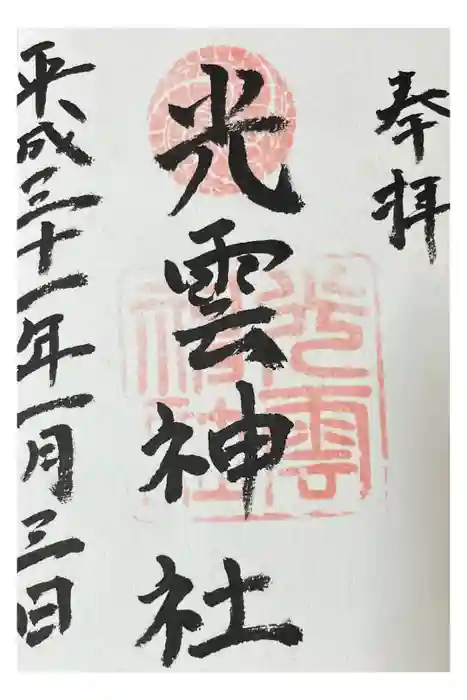 奉拝
光雲神社
光雲神社
平成三十一年一月三日